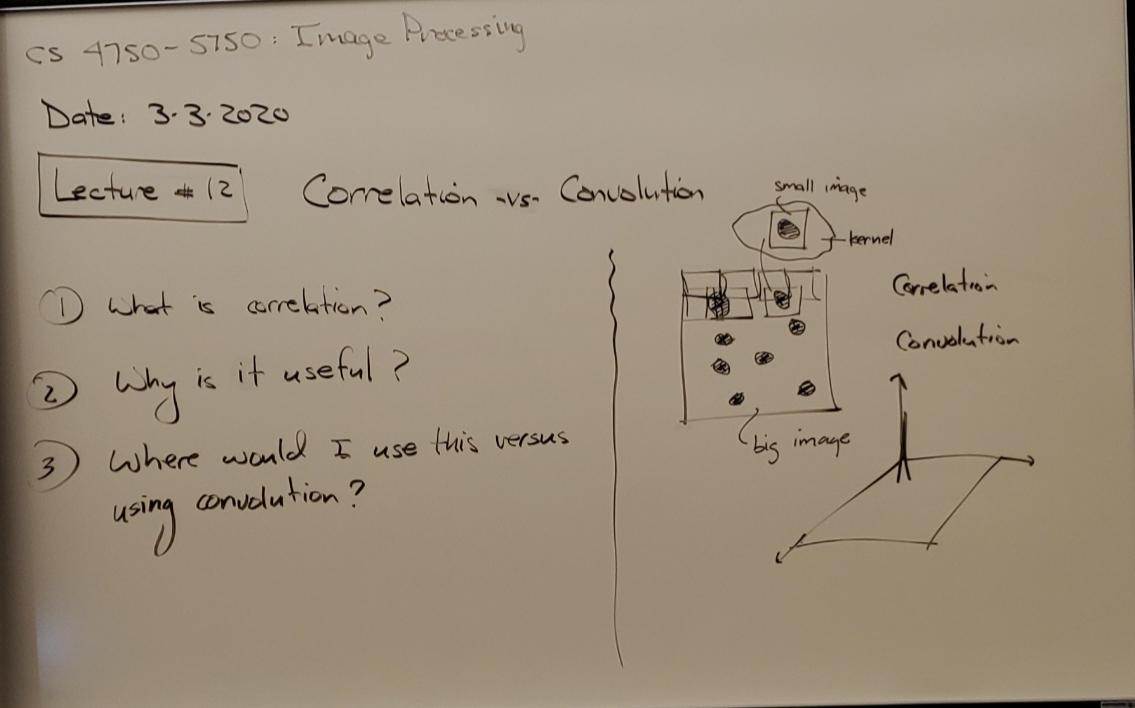 CS 4750-5750: Image Processing
Date: 3.3.2020
Lecture # 12
Correlation -vs- Convolution
① What is correlation?
② Why is it useful?
③ Where would I use this versus
using convolution?
small image
kernel
Correlation
Convolution
big image